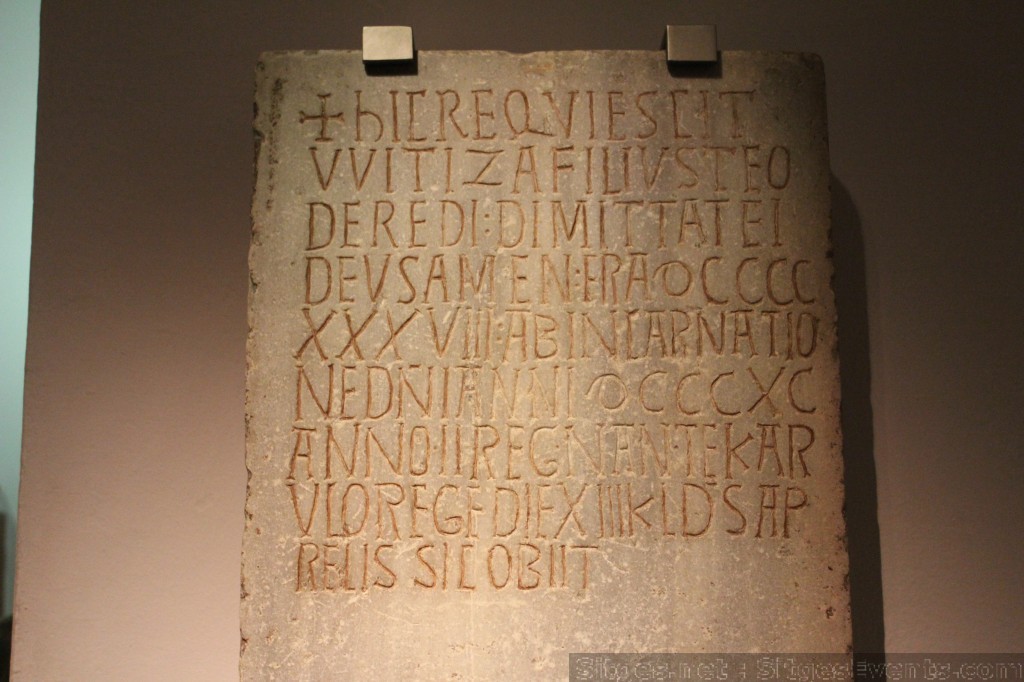 + hIC REQVIESCIT
VVITIZA FILIVS TEO
DEREDI : DIMITTAT EI
DEVS AMEN : ERA CCCC
XXXVIII : AB INCARNATIO
NE DNI ANNI CCCXC
ANNO : II REGNANTE KAR
VLO REGE DIE XIIII KLDS AP
RELIS SIC OBIIT
Sitges.net : SitgesEvents.com